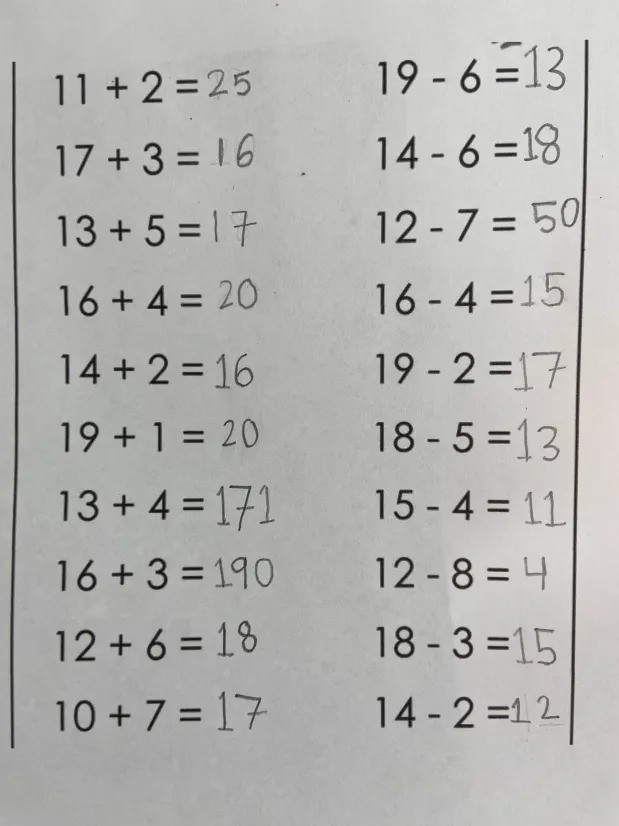 11 + 2 = 25
17 + 3 = 16
13 + 5 = 17
16 + 4 = 20
14 + 2 = 16
19 + 1 = 20
13 + 4 = 171
16 + 3 = 190
12 + 6 = 18
10 + 7 = 17
19 - 6 = 13
14 - 6 = 18
12 - 7 = 50
16 - 4 = 15
19 - 2 = 17
18 - 5 = 13
15 - 4 = 11
12 - 8 = 4
18 - 3 = 15
14 - 2 = 12